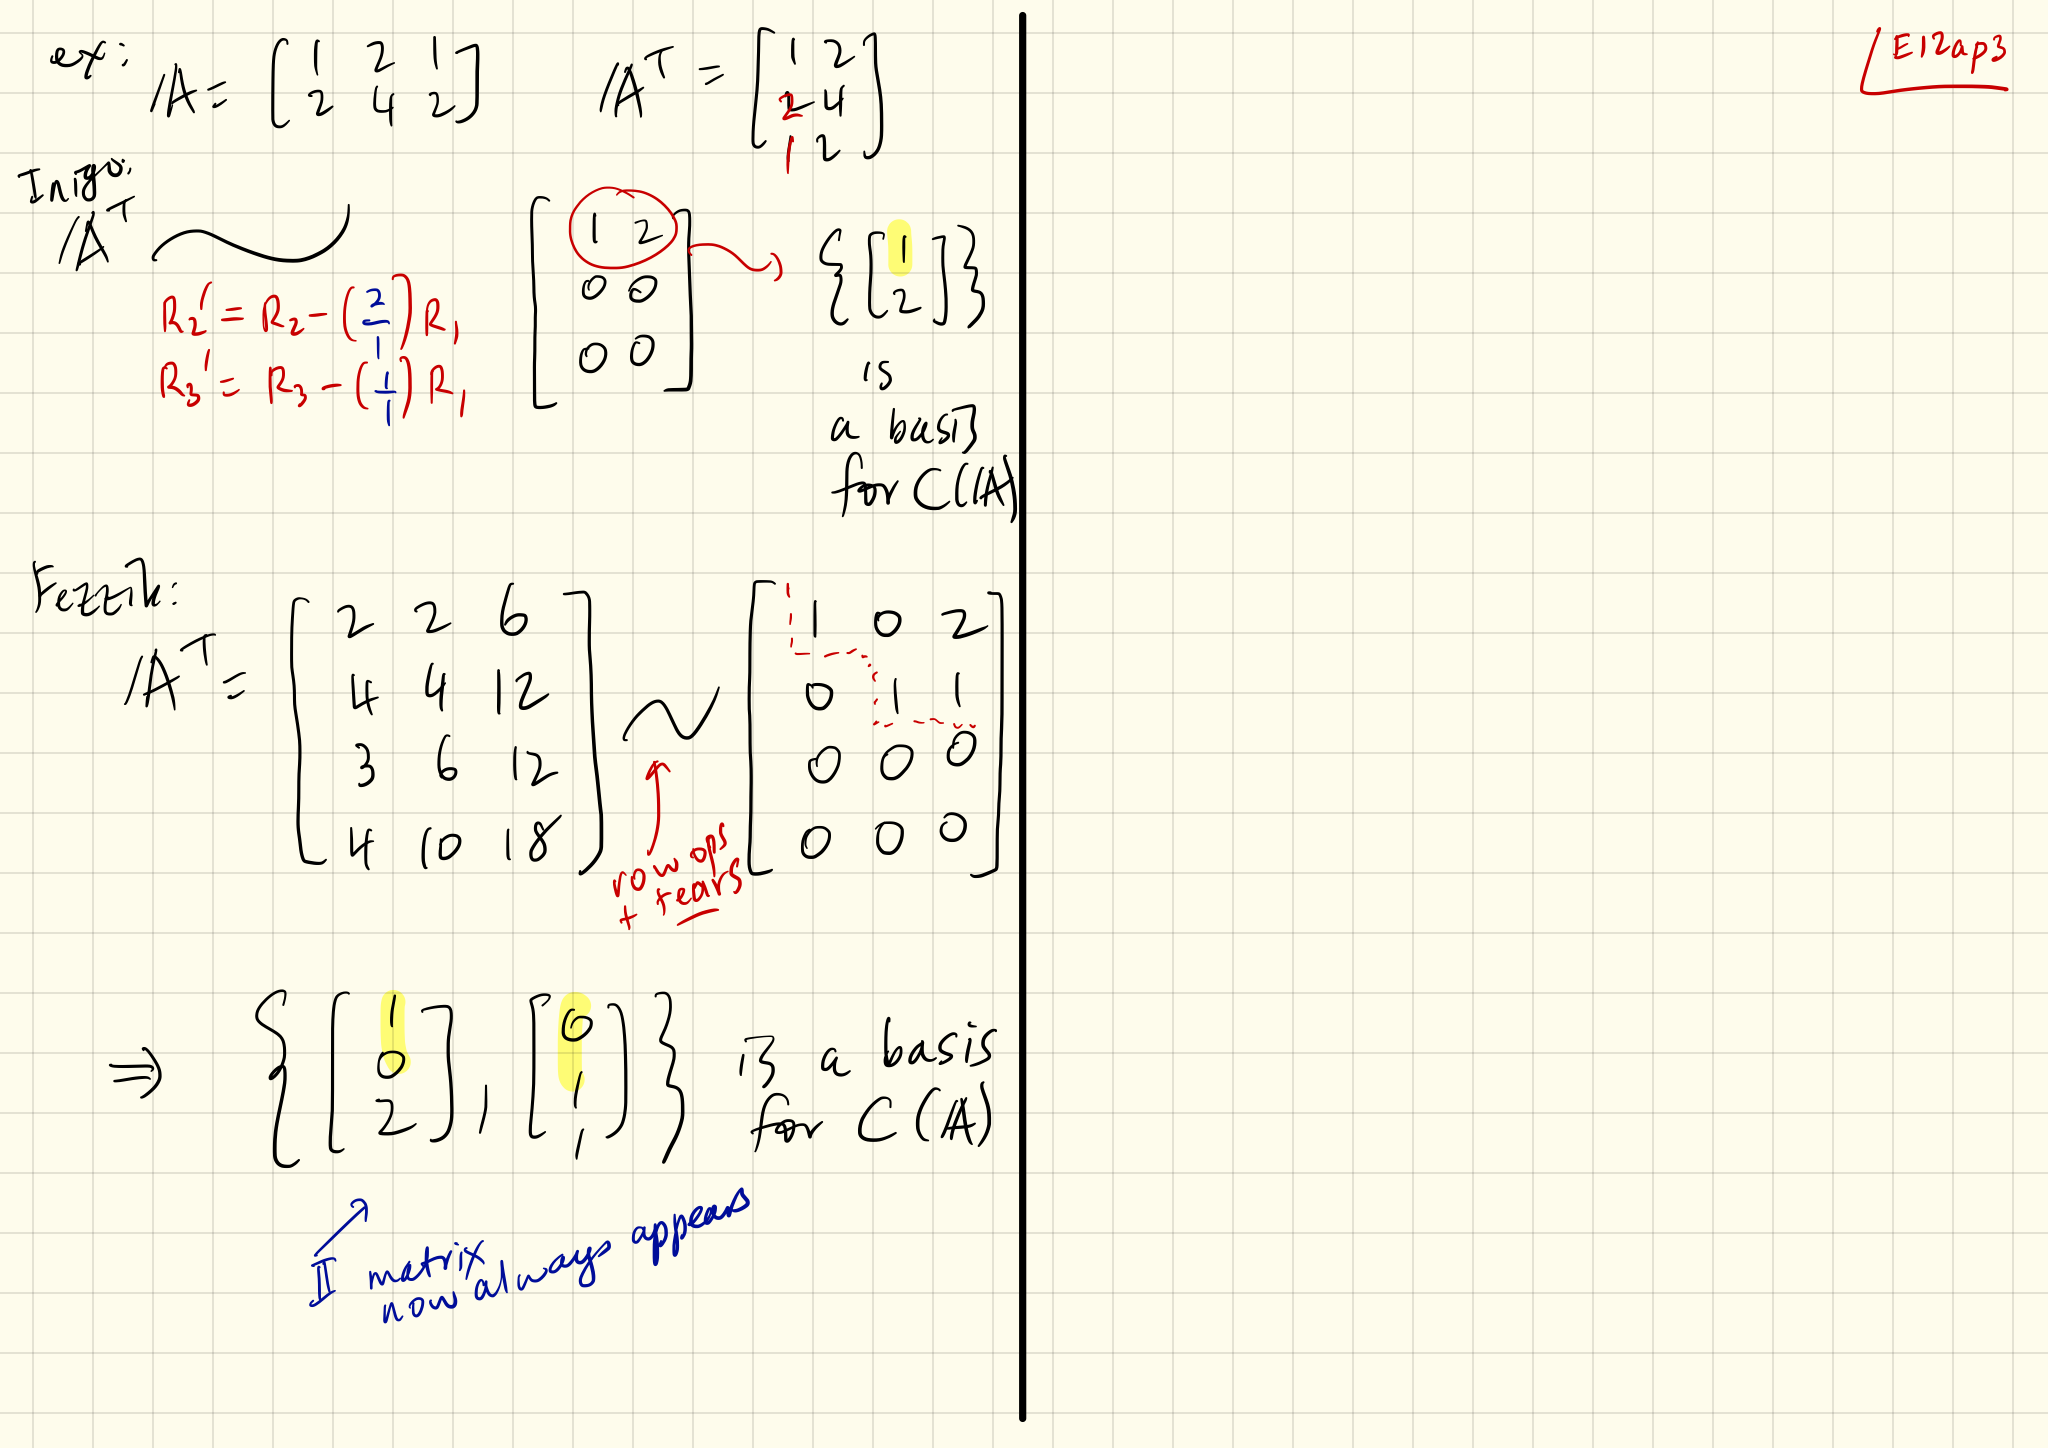 E12ap3
ex: A = [ 1 2 1 ; 2 4 2 ]  Aᵀ = [ 1 2 ; 2 4 ; 1 2 ]
Inigo:
Aᵀ ~ [ 1 2 ; 0 0 ; 0 0 ] → { [ 1 ; 2 ] }
R₂' = R₂ - (2/1) R₁
R₃' = R₃ - (1/1) R₁
is
a basis
for C(A)
Fezzik:
Aᵀ = [ 2 2 6 ; 4 4 12 ; 3 6 12 ; 4 10 18 ] ~ [ 1 0 2 ; 0 1 1 ; 0 0 0 ; 0 0 0 ]
row ops
+ tears
⇒ { [ 1 ; 0 ; 2 ] , [ 0 ; 1 ; 1 ] } is a basis
for C(A)
𝕀 matrix
now always appears